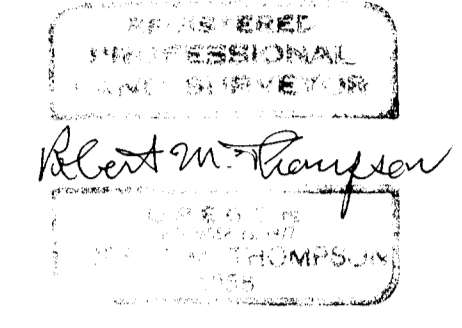 REGISTERED
PROFESSIONAL
LAND SURVEYOR
Robert M. Thompson
OREGON
THOMPSON